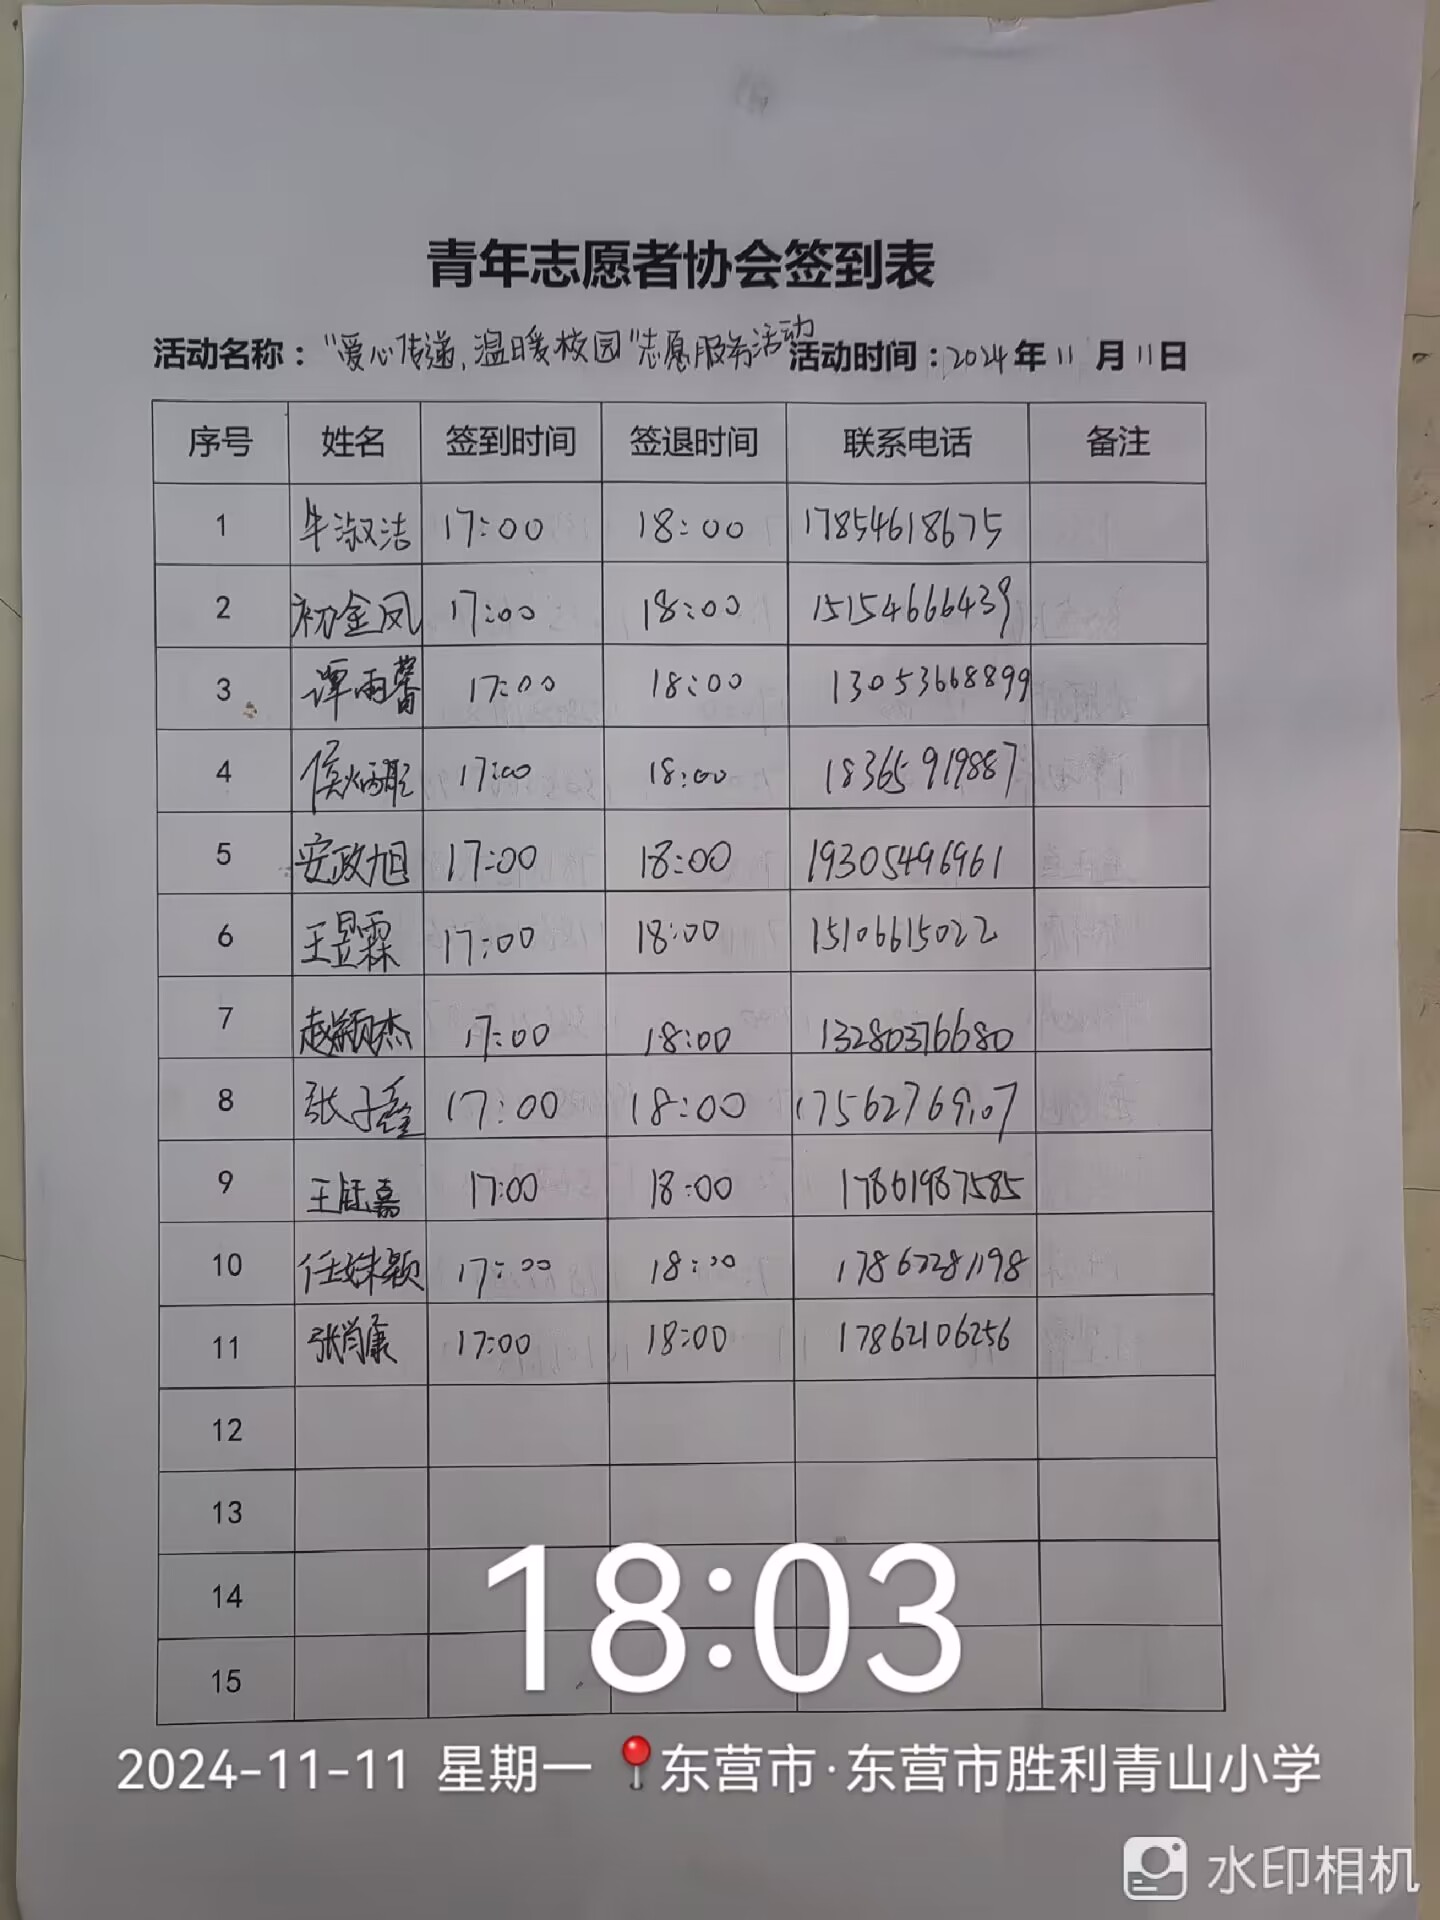 青年志愿者协会签到表
活动名称："爱心传递,温暖校园"志愿服务活动 活动时间：2024年11月11日
序号 姓名 签到时间 签退时间 联系电话 备注
1 牛淑洁 17:00 18:00 17854618675
2 初金凤 17:00 18:00 15154666439
3 谭雨馨 17:00 18:00 13053668899
4 侯炳彤 17:00 18:00 18365919887
5 安政旭 17:00 18:00 19305496961
6 王昱霖 17:00 18:00 15106615022
7 赵颖杰 17:00 18:00 13280376680
8 张子 17:00 18:00 17562769107
9 王钰嘉 17:00 18:00 17861987585
10 任姝颖 17:00 18:00 17867281198
11 张肖康 17:00 18:00 17862106256
12
13
14
15
18:03
2024-11-11 星期一 东营市·东营市胜利青山小学
水印相机